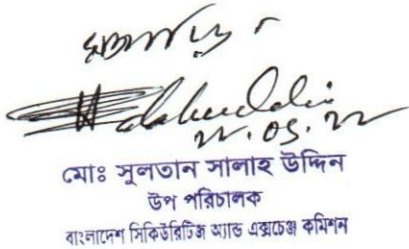 ২২.০৫.২২
মোঃ সুলতান সালাহ উদ্দিন
উপ পরিচালক
বাংলাদেশ সিকিউরিটিজ অ্যান্ড এক্সচেঞ্জ কমিশন